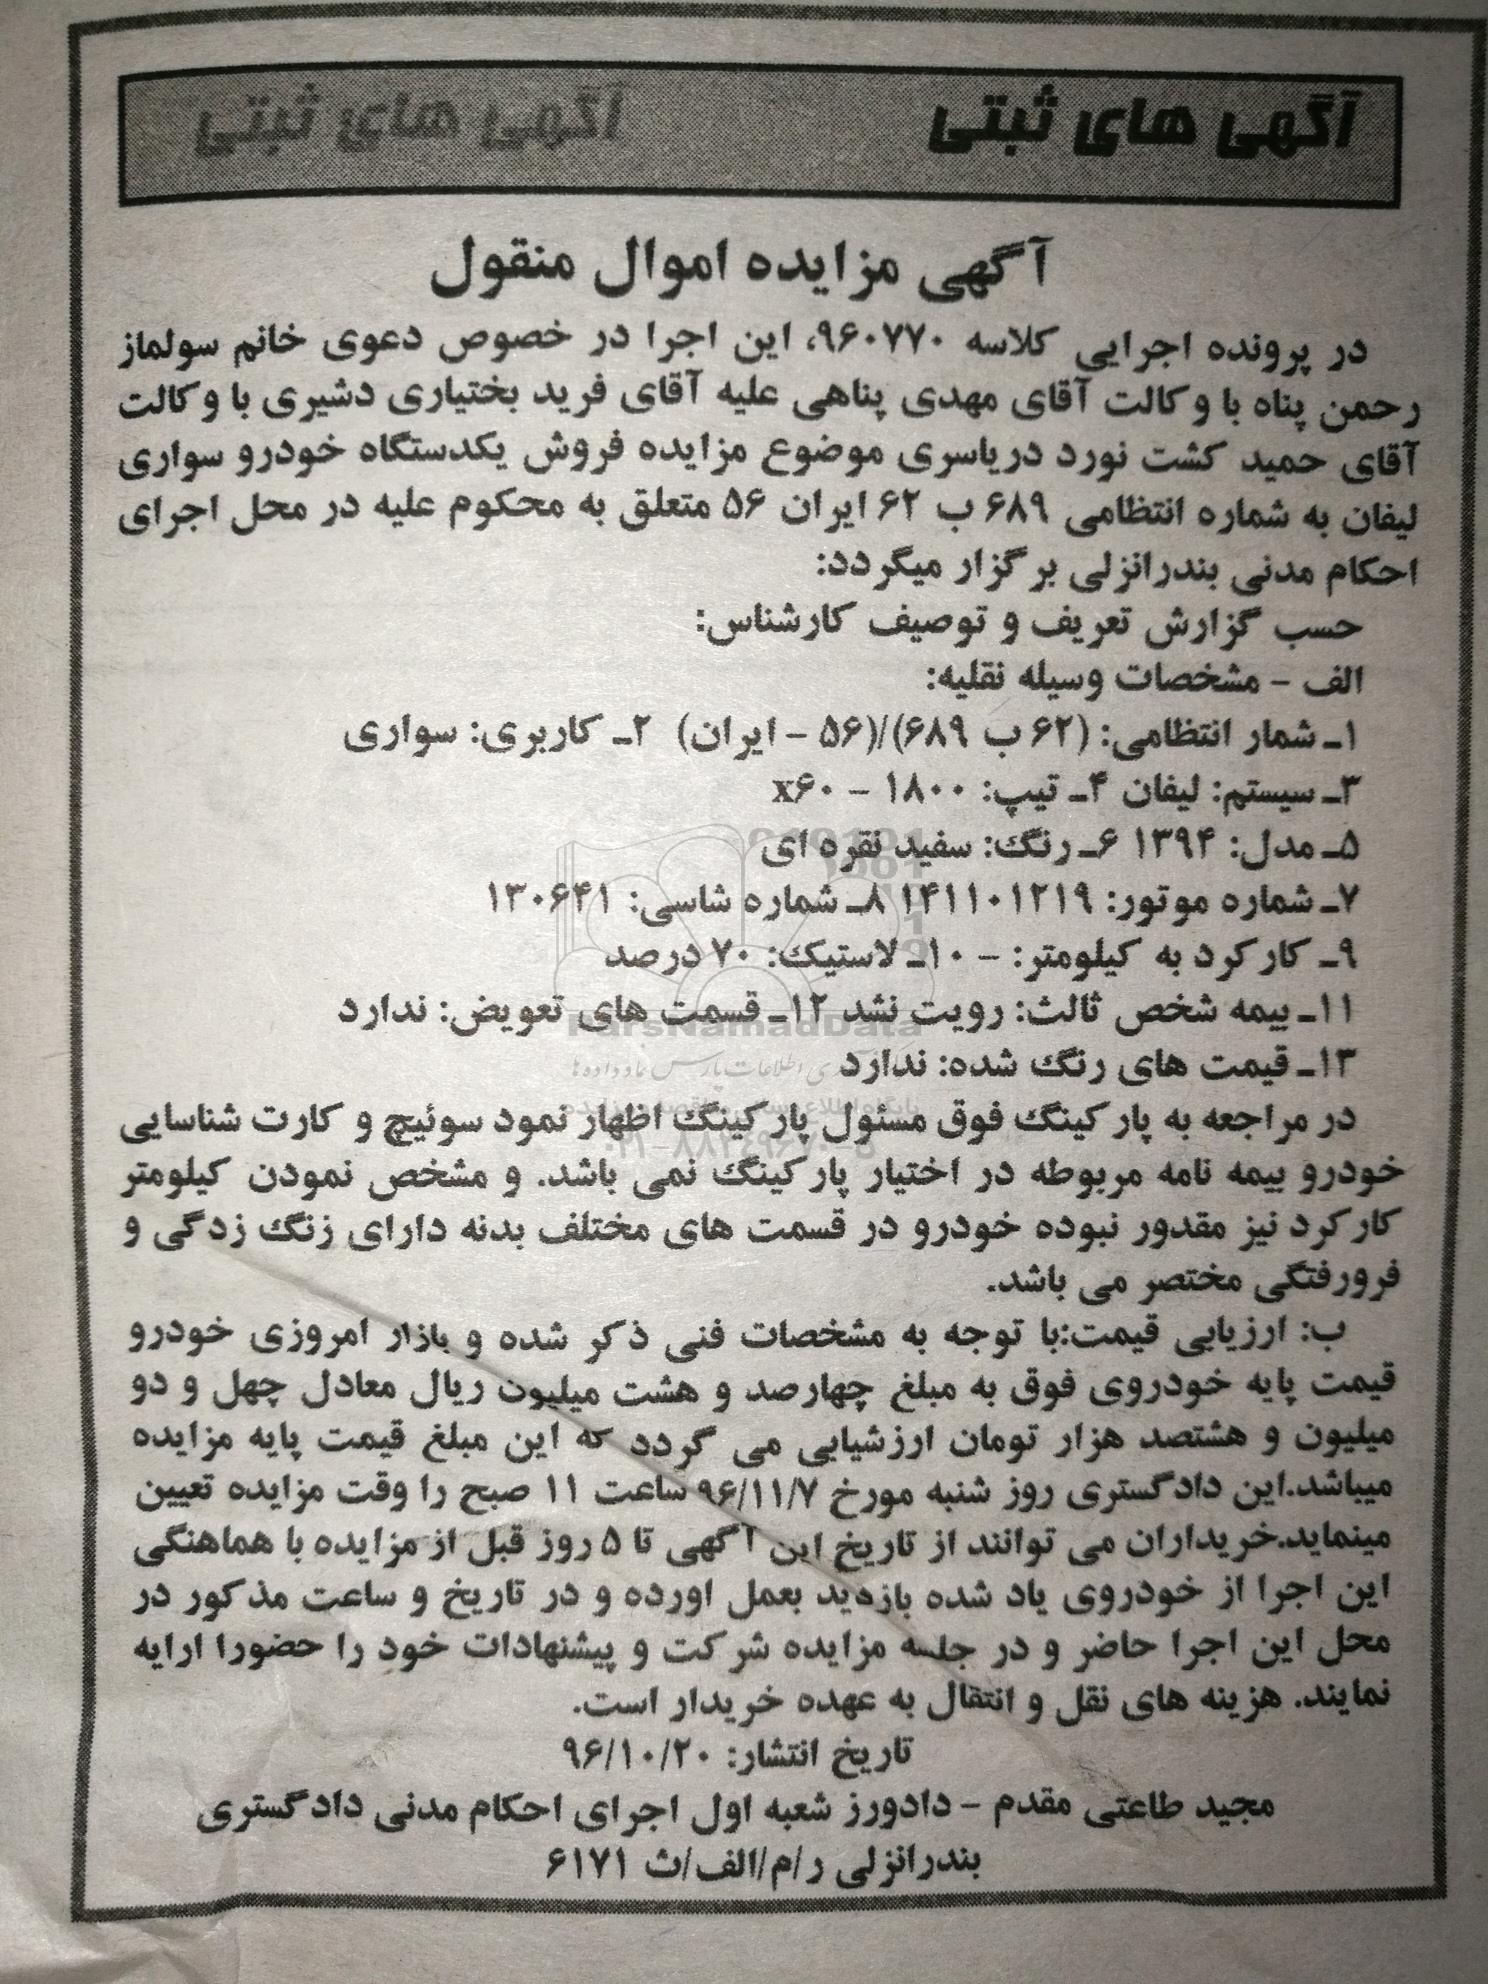 آگهی های ثبتی آگهی های ثبتی
آگهی مزایده اموال منقول
در پرونده اجرایی کلاسه ۹۶۰۷۷۰، این اجرا در خصوص دعوی خانم سولماز
رحمن پناه با وکالت آقای مهدی پناهی علیه آقای فرید بختیاری دشیری با وکالت
آقای حمید کشت نورد دریاسری موضوع مزایده فروش یکدستگاه خودرو سواری
لیفان به شماره انتظامی ۶۸۹ ب ۶۲ ایران ۵۶ متعلق به محکوم علیه در محل اجرای
احکام مدنی بندرانزلی برگزار میگردد:
حسب گزارش تعریف و توصیف کارشناس:
الف - مشخصات وسیله نقلیه:
۱ـ شمار انتظامی: (۶۲ ب ۶۸۹)/(۵۶ - ایران) ۲ـ کاربری: سواری
۳ـ سیستم: لیفان ۴ـ تیپ: ۱۸۰۰ - x۶۰
۵ـ مدل: ۱۳۹۴ ۶ـ رنگ: سفید نقره ای
۷ـ شماره موتور: ۱۴۱۱۰۱۲۱۹ ۸ـ شماره شاسی: ۱۳۰۶۴۱
۹ـ کارکرد به کیلومتر: - ۱۰ـ لاستیک: ۷۰ درصد
۱۱ـ بیمه شخص ثالث: رویت نشد ۱۲ـ قسمت های تعویض: ندارد
ParsNamadData
۱۳ـ قیمت های رنگ شده: ندارد
در مراجعه به پارکینگ فوق مسئول پارکینگ اظهار نمود سوئیچ و کارت شناسایی
خودرو بیمه نامه مربوطه در اختیار پارکینگ نمی باشد. و مشخص نمودن کیلومتر
کارکرد نیز مقدور نبوده خودرو در قسمت های مختلف بدنه دارای زنگ زدگی و
فرورفتگی مختصر می باشد.
ب: ارزیابی قیمت:با توجه به مشخصات فنی ذکر شده و بازار امروزی خودرو
قیمت پایه خودروی فوق به مبلغ چهارصد و هشت میلیون ریال معادل چهل و دو
میلیون و هشتصد هزار تومان ارزشیابی می گردد که این مبلغ قیمت پایه مزایده
میباشد.این دادگستری روز شنبه مورخ ۹۶/۱۱/۷ ساعت ۱۱ صبح را وقت مزایده تعیین
مینماید.خریداران می توانند از تاریخ این آگهی تا ۵ روز قبل از مزایده با هماهنگی
این اجرا از خودروی یاد شده بازدید بعمل اورده و در تاریخ و ساعت مذکور در
محل این اجرا حاضر و در جلسه مزایده شرکت و پیشنهادات خود را حضورا ارایه
نمایند. هزینه های نقل و انتقال به عهده خریدار است.
تاریخ انتشار: ۹۶/۱۰/۲۰
مجید طاعتی مقدم - دادورز شعبه اول اجرای احکام مدنی دادگستری
بندرانزلی ر/م/الف/ث ۶۱۷۱